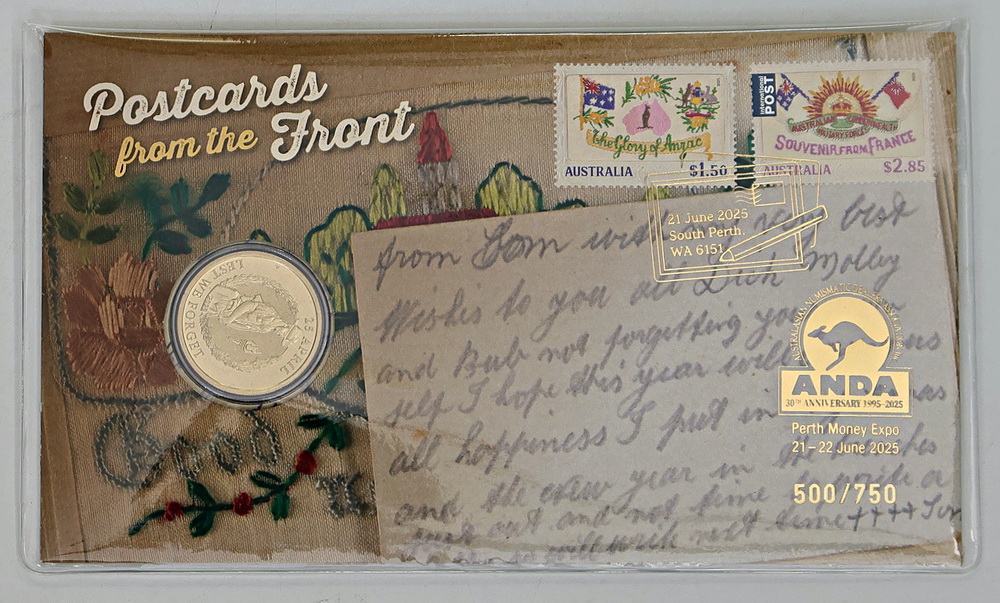 Postcards
from the Front
LEST WE FORGET
25 APRIL
The Glory of Anzac
AUSTRALIA $1.50
International POST
AUSTRALIAN COMMONWEALTH
MILITARY FORCES
SOUVENIR FROM FRANCE
AUSTRALIA $2.85
21 June 2025
South Perth,
WA 6151
from Tom with very best
Wishes to you all Dick Molley
and Bub not forgetting
self I hope this year will
all happiness I put in
and the new year in
out and not time
will write next time ++++
Good
ANDA
30TH ANNIVERSARY 1995-2025
Perth Money Expo
21–22 June 2025
500/750